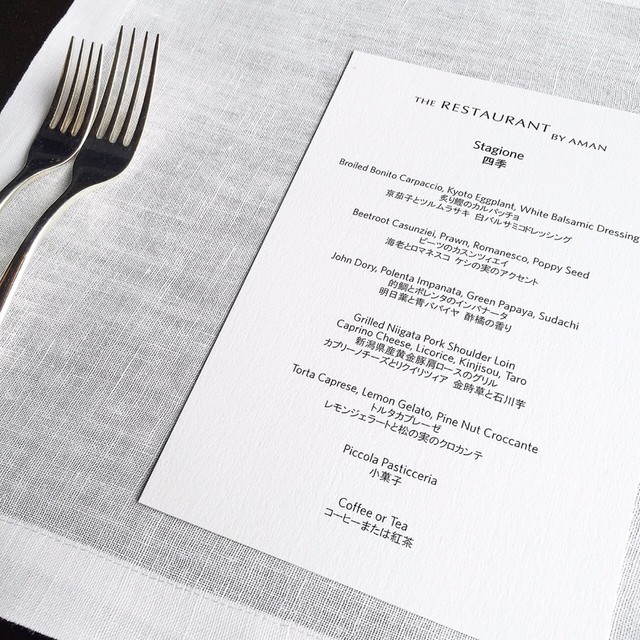 THE RESTAURANT BY AMAN
Stagione
四季
Broiled Bonito Carpaccio, Kyoto Eggplant, White Balsamic Dressing
炙り鰹のカルパッチョ
京茄子とツルムラサキ 白バルサミコドレッシング
Beetroot Casunziei, Prawn, Romanesco, Poppy Seed
ビーツのカスンツィエイ
海老とロマネスコ ケシの実のアクセント
John Dory, Polenta Impanata, Green Papaya, Sudachi
的鯛とポレンタのインパナータ
明日葉と青パパイヤ 酢橘の香り
Grilled Niigata Pork Shoulder Loin
Caprino Cheese, Licorice, Kinjisou, Taro
新潟県産黄金豚肩ロースのグリル
カプリーノチーズとリクイリツィア 金時草と石川芋
Torta Caprese, Lemon Gelato, Pine Nut Croccante
トルタカプレーゼ
レモンジェラートと松の実のクロカンテ
Piccola Pasticceria
小菓子
Coffee or Tea
コーヒーまたは紅茶